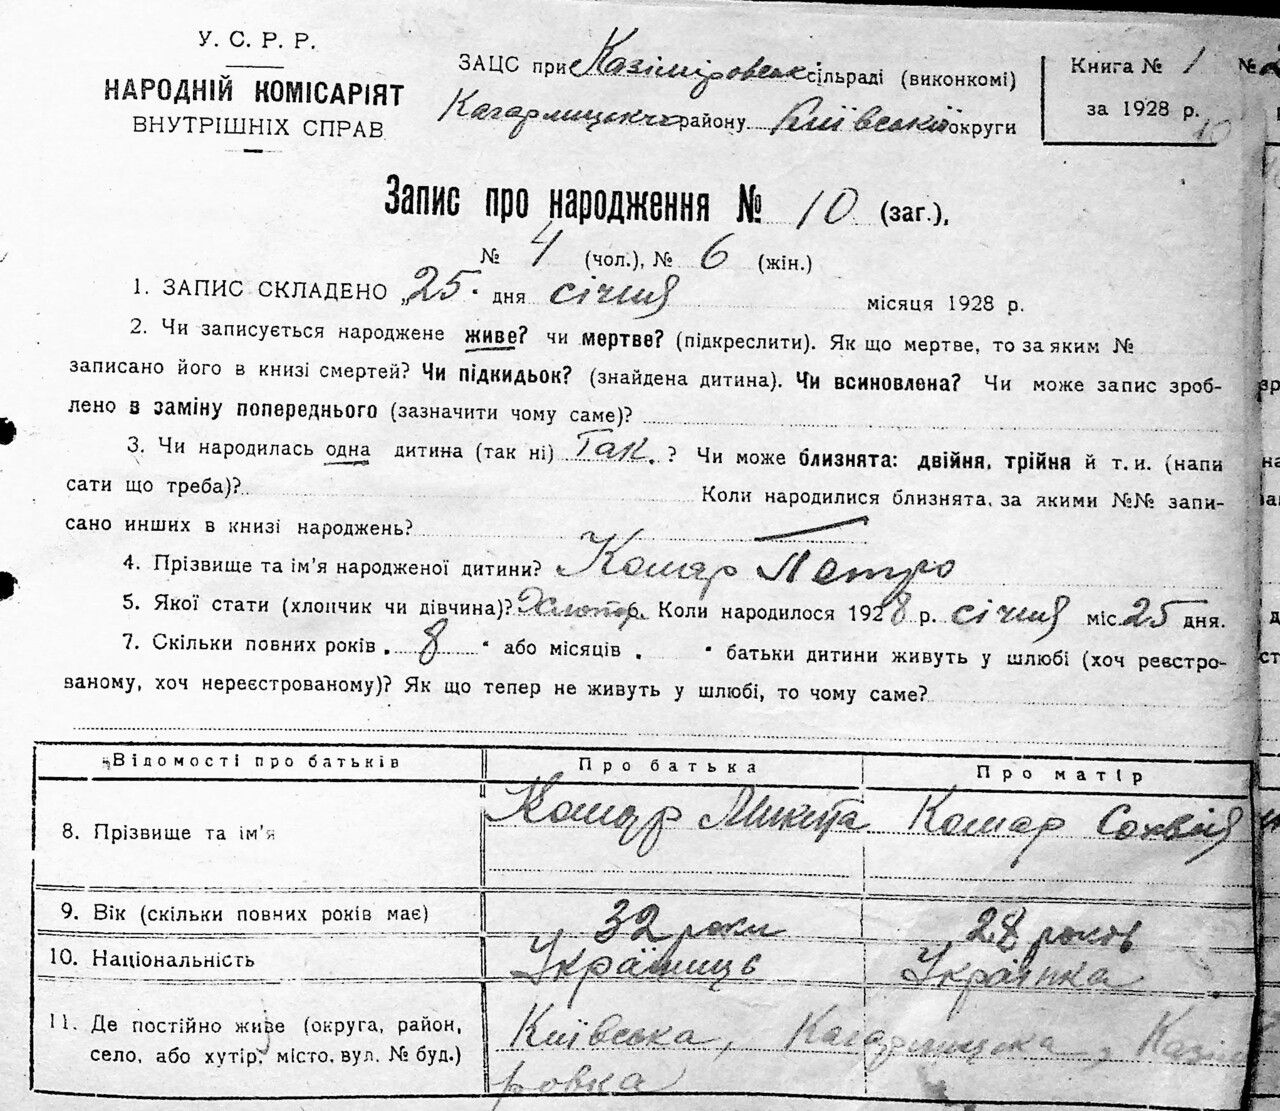 У. С. Р. Р.
НАРОДНІЙ КОМІСАРІЯТ
ВНУТРІШНІХ СПРАВ
ЗАЦС при Казіміровськ сільраді (виконкомі)
Кагарлицького району Київської округи
Книга № 1 №
за 1928 р.
10
Запис про народження № 10 (заг.),
№ 4 (чол.), № 6 (жін.)
1. ЗАПИС СКЛАДЕНО „25" дня січня місяця 1928 р.
2. Чи записується народжене живе? чи мертве? (підкреслити). Як що мертве, то за яким №
записано його в книзі смертей? Чи підкидьок? (знайдена дитина). Чи всиновлена? Чи може запис зроб-
лено в заміну попереднього (зазначити чому саме)?
3. Чи народилась одна дитина (так ні) Так. ? Чи може близнята: двійня, трійня й т. и. (напи
сати що треба)? Коли народилися близнята, за якими №№ запи-
сано инших в книзі народжень?
4. Прізвище та ім'я народженої дитини? Комар Петро
5. Якої статі (хлопчик чи дівчина)? Хлопч. Коли народилося 1928 р. січня міс. 25 дня.
7. Скільки повних років „ 8 " або місяців „ " батьки дитини живуть у шлюбі (хоч реєстро-
ваному, хоч нереєстрованому)? Як що тепер не живуть у шлюбі, то чому саме?
Відомості про батьків Про батька Про матір
8. Прізвище та ім'я Комар Микита Комар Сохвія
9. Вік (скільки повних років має) 32 роки 28 років
10. Національність Українець Українка
11. Де постійно живе (округа, район,
село, або хутір, місто, вул. № буд.)
Київська, Кагарлицька, Казімі
ровка